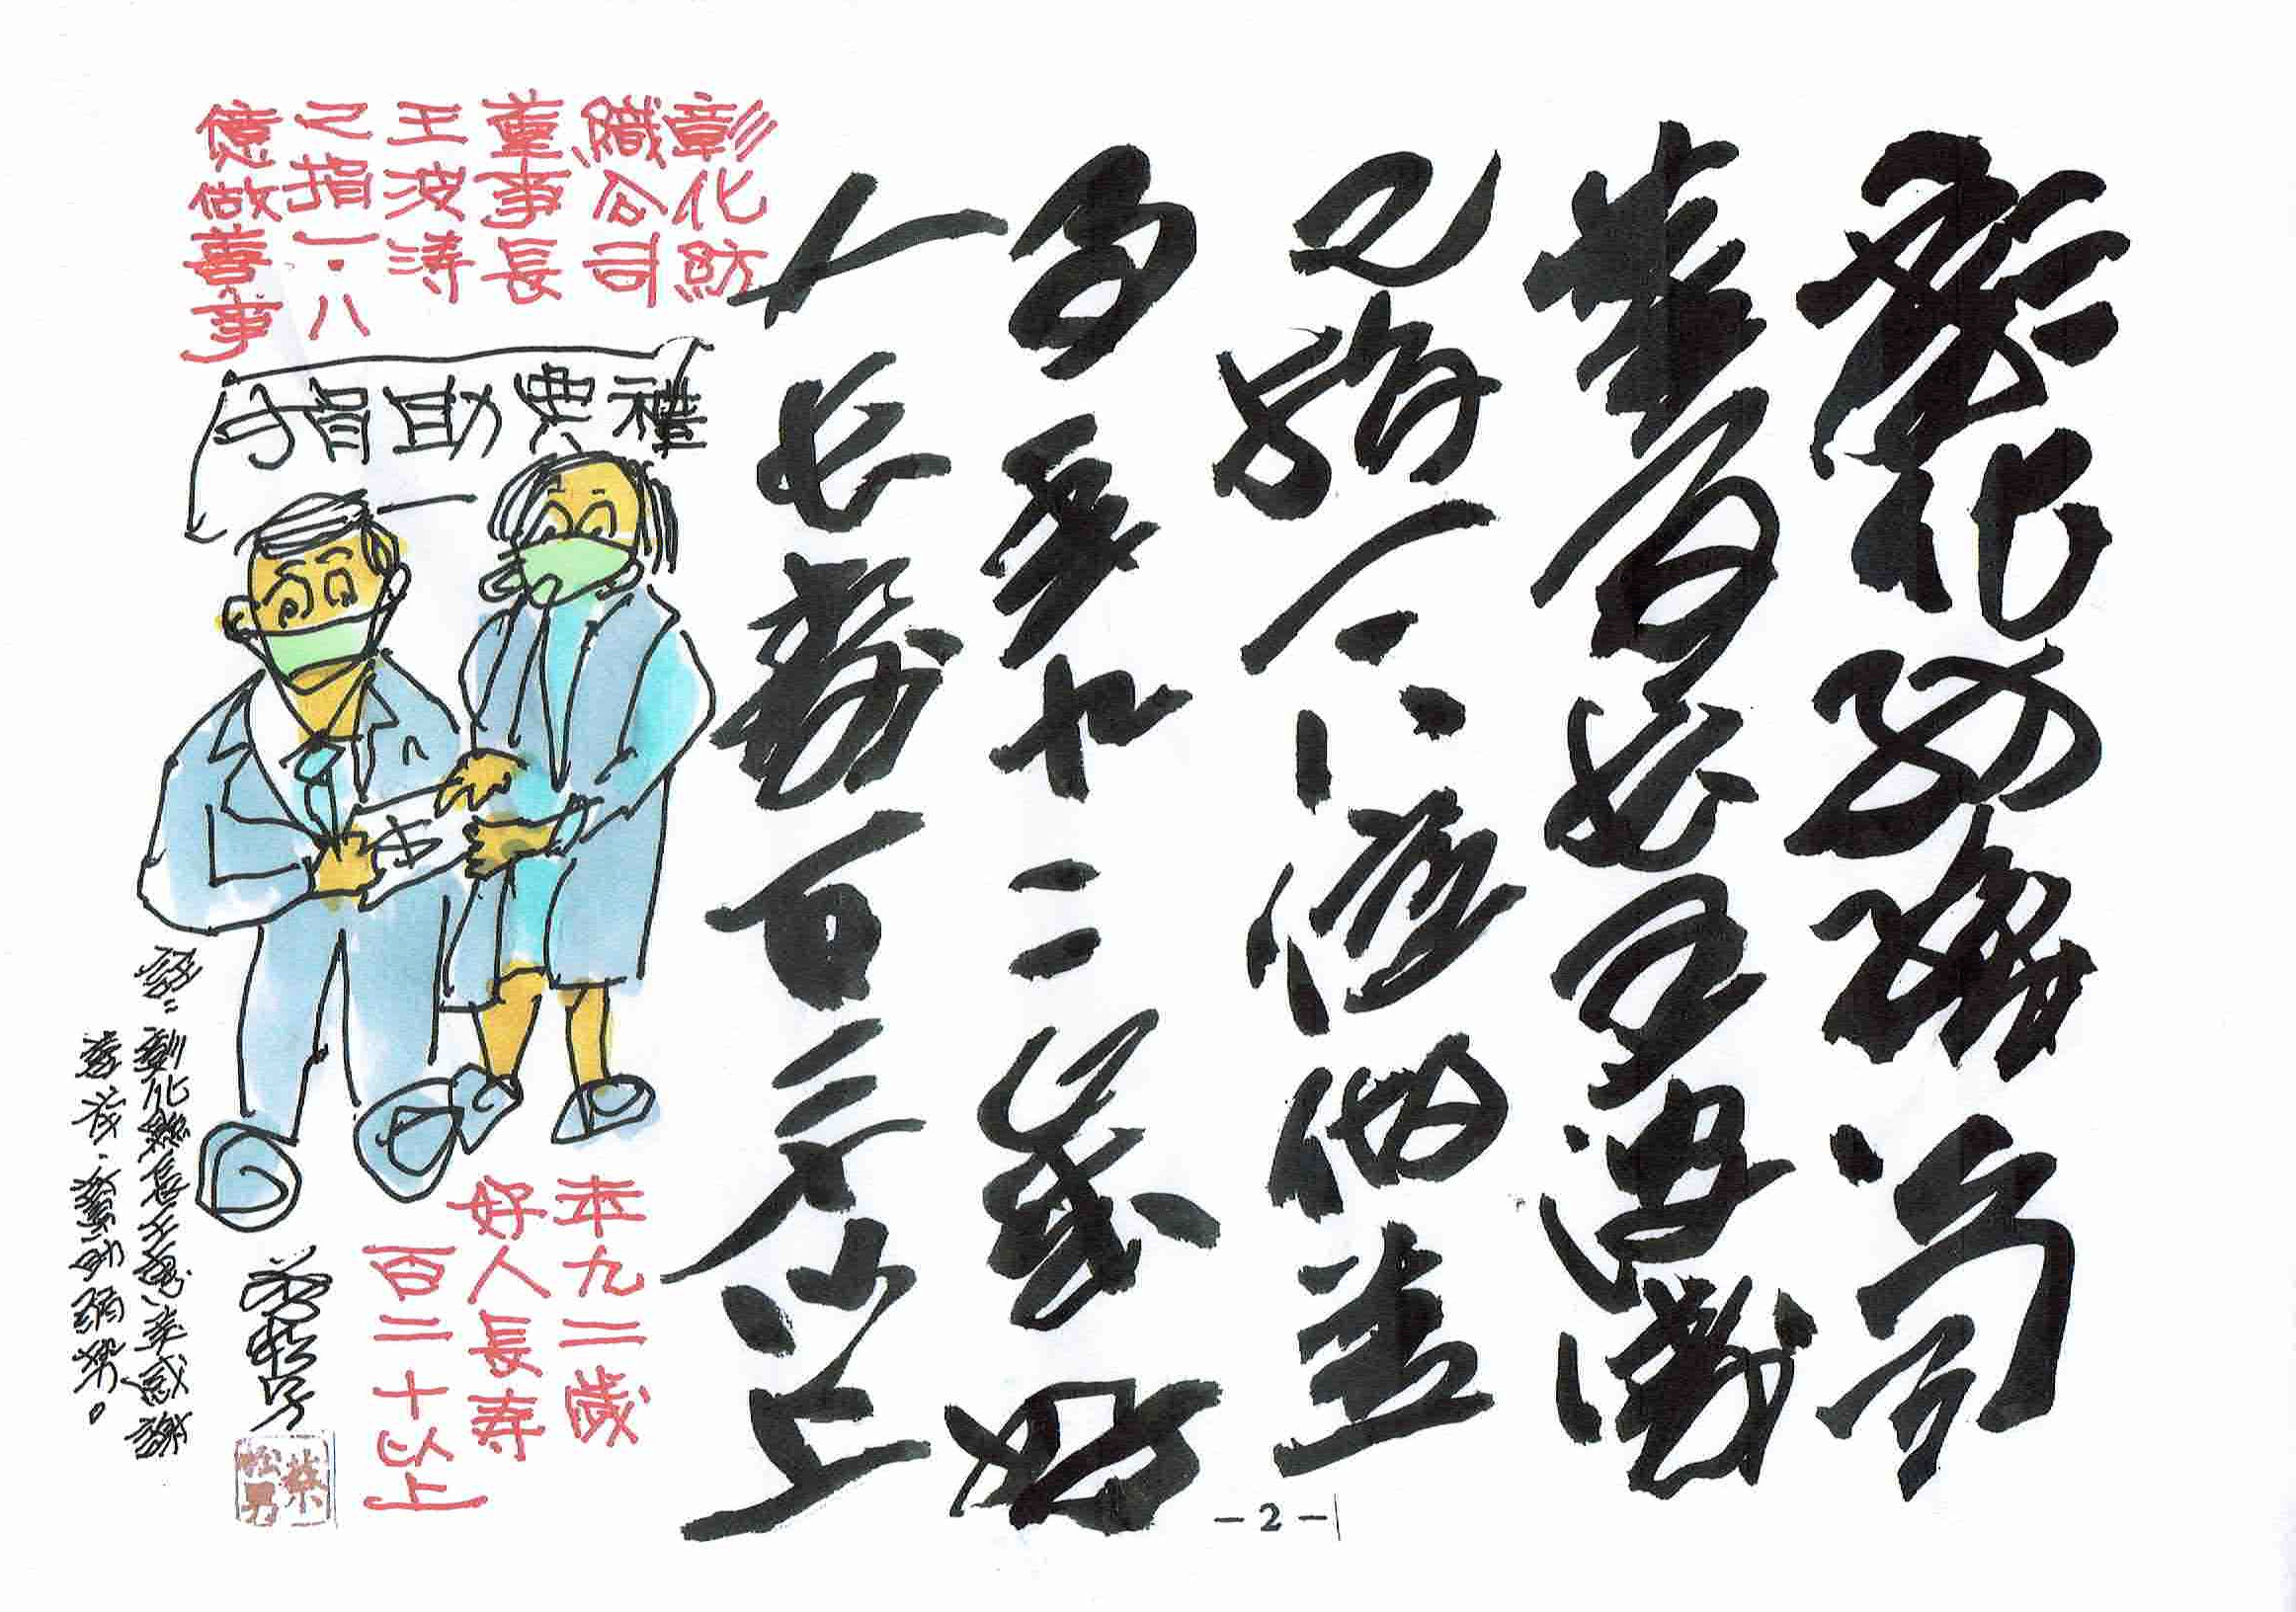 彰化紡織公司
董事長王波濤
之捐一.八億做善
事年九二歲好
人長壽百二十以上
彰化紡
織公司
董事長
王波涛
之捐一.八
億做善事
捐助典禮
年九二歲
好人長寿
百二十以上
蔡松男
蔡松男
註:彰化縣長王惠美感謝
助弱勢。
-2-